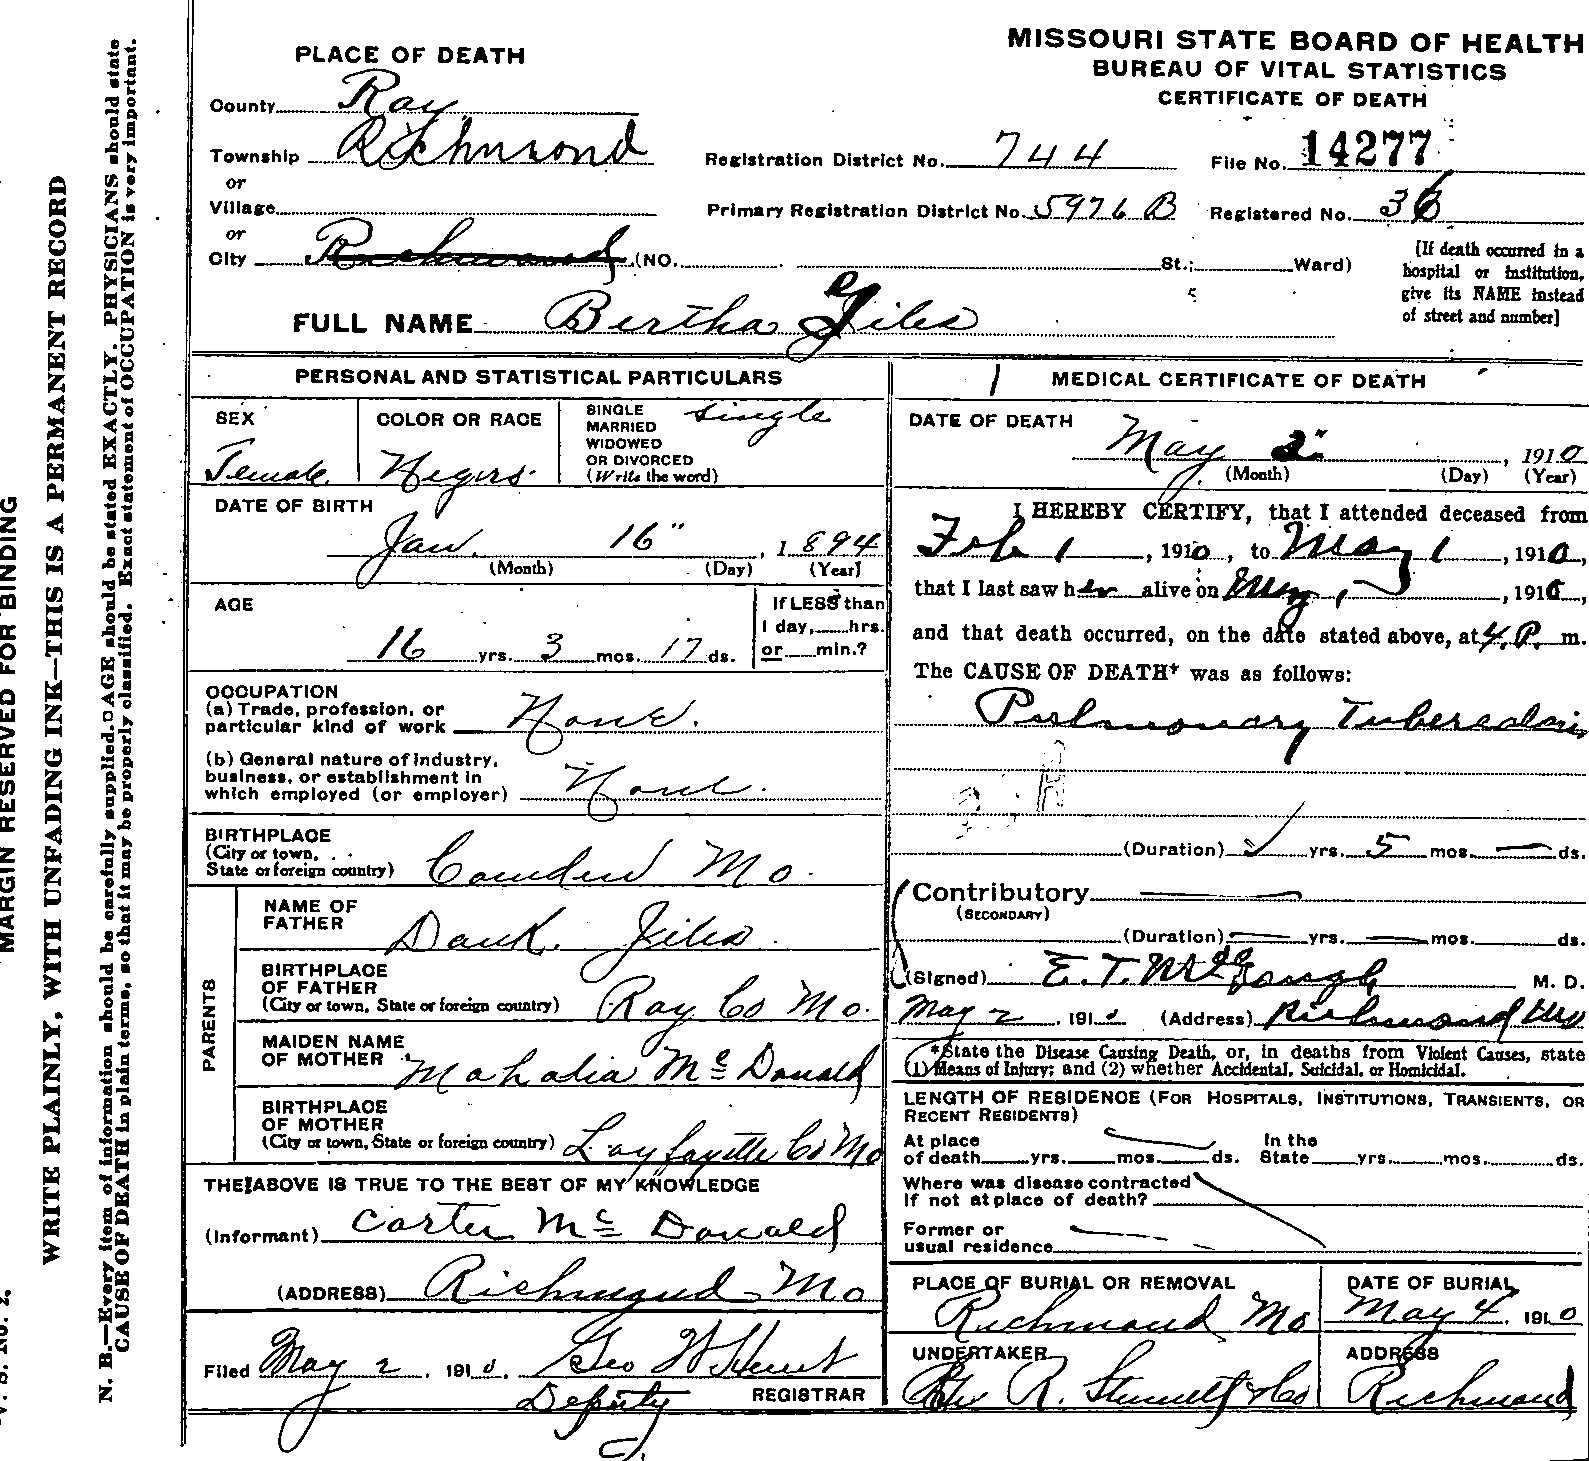 MISSOURI STATE BOARD OF HEALTH
BUREAU OF VITAL STATISTICS
CERTIFICATE OF DEATH
PLACE OF DEATH
County Ray
Township Richmond
or
Village
or
City Richmond (NO. St.; Ward)
Registration District No. 744
File No. 14277
Primary Registration District No. 5976 B
Registered No. 36
[If death occurred in a
hospital or institution,
give its NAME instead
of street and number]
FULL NAME Bertha Giles
PERSONAL AND STATISTICAL PARTICULARS
SEX
Female
COLOR OR RACE
Negro
SINGLE
MARRIED
WIDOWED
OR DIVORCED
(Write the word)
Single
DATE OF BIRTH
Jan. 16", 1894
(Month) (Day) (Year)
AGE
16 yrs. 3 mos. 17 ds.
If LESS than
1 day, hrs.
or min.?
OCCUPATION
(a) Trade, profession, or
particular kind of work None.
(b) General nature of industry,
business, or establishment in
which employed (or employer) None.
BIRTHPLACE
(City or town,
State or foreign country) Camden Mo.
PARENTS
NAME OF
FATHER Jiles
BIRTHPLACE
OF FATHER
(City or town, State or foreign country) Ray Co Mo.
MAIDEN NAME
OF MOTHER Mahalia McDonald
BIRTHPLACE
OF MOTHER
(City or town, State or foreign country) Layfayette Co Mo
THE ABOVE IS TRUE TO THE BEST OF MY KNOWLEDGE
(Informant) Carter Mc Donald
(ADDRESS) Richmond Mo
Filed May 2, 1910. Geo W Hunt
Deputy REGISTRAR
MEDICAL CERTIFICATE OF DEATH
DATE OF DEATH
May 2", 1910
(Month) (Day) (Year)
I HEREBY CERTIFY, that I attended deceased from
Feb 1, 1910, to May 1, 1910,
that I last saw her alive on May 1, 1910,
and that death occurred, on the date stated above, at 4 P. m.
The CAUSE OF DEATH* was as follows:
Pulmonary Tuberculosis
(Duration) yrs. 5 mos. — ds.
Contributory
(SECONDARY)
(Duration) — yrs. — mos. ds.
(Signed) E. T. McGaugh M. D.
May 2, 1910 (Address) Richmond Mo
*State the Disease Causing Death, or, in deaths from Violent Causes, state
(1) Means of Injury; and (2) whether Accidental, Suicidal, or Homicidal.
LENGTH OF RESIDENCE (FOR HOSPITALS, INSTITUTIONS, TRANSIENTS, OR
RECENT RESIDENTS)
At place
of death yrs. mos. ds.
In the
State yrs. mos. ds.
Where was disease contracted
if not at place of death?
Former or
usual residence
PLACE OF BURIAL OR REMOVAL
Richmond Mo
DATE OF BURIAL
May 4, 1910
UNDERTAKER
R. & Co
ADDRESS
Richmond
MARGIN RESERVED FOR BINDING
WRITE PLAINLY, WITH UNFADING INK—THIS IS A PERMANENT RECORD
N. B.—Every item of information should be carefully supplied. AGE should be stated EXACTLY. PHYSICIANS should state
CAUSE OF DEATH in plain terms, so that it may be properly classified. Exact statement of OCCUPATION is very important.
V. S. No. 2.